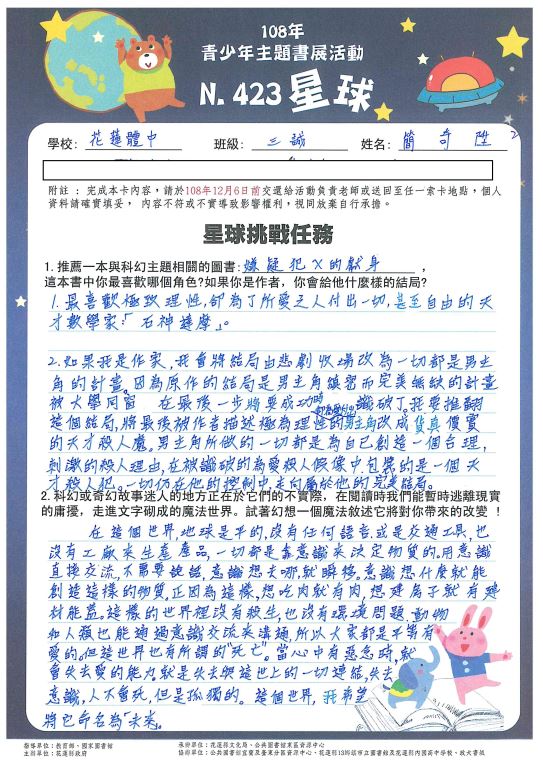 108年
青少年主題書展活動
N. 423 星球
學校: 花蓮體中 班級: 三誠 姓名: 簡奇陞
附註 : 完成本卡內容,請於108年12月6日前交還給活動負責老師或送回至任一索卡地點,個人
資料請確實填妥, 內容不符或不實導致影響權利,視同放棄自行承擔。
星球挑戰任務
1. 推薦一本與科幻主題相關的圖書: 嫌疑犯X的獻身 ,
這本書中你最喜歡哪個角色?如果你是作者,你會給他什麼樣的結局?
1. 最喜歡極致理性,卻為了所愛之人付出一切,甚至自由的天
才數學家:「石神達摩」。
2. 如果我是作家,我會將結局由悲劇收場改為一切都是男主
角的計畫。因為原作的結局是男主角縝密而完美無缺的計畫
被大學同窗 在最後一步將要成功時 識破了。我要推翻
這個結局,將最後被作者描述極為理性的男主角改成貨真價實
的天才殺人魔。男主角所做的一切都是為自己創造一個合理,
刺激的殺人理由,在被識破的為愛殺人假像中包裹的是一個天
才殺人犯。一切仍在他的控制中,走向屬於他的完美結局。
2. 科幻或奇幻故事迷人的地方正在於它們的不實際,在閱讀時我們能暫時逃離現實
的庸擾,走進文字砌成的魔法世界。試著幻想一個魔法敘述它將對你帶來的改變 !
在這個世界,地球是平的,沒有任何語言或是交通工具,也
沒有工廠來生產產品,一切都是靠意識來決定物質的。用意識
直接交流,不需要說話,意識想去哪就瞬移。意識想什麼就能
創造這樣的物質,正因為這樣,想吃肉就有肉,想建房子就有建
材能蓋。這樣的世界裡沒有殺生,也沒有環境問題,動物
和人類也能通過意識交流來溝通,所以大家都是平等有
愛的。但這世界也有所謂的"死亡"。當心中有惡念時,就
會失去愛的能力就是失去與這世上的一切連結,失去
意識,人不會死,但是孤獨的。這個世界,我希望
將它命名為"未來"。
指導單位:教育部、國家圖書館
主辦單位:花蓮縣政府
承辦單位:花蓮縣文化局、公共圖書館東區資源中心
協辦單位:公共圖書館宜蘭及臺東分區資源中心、花蓮縣13鄉鎮市立圖書館及花蓮縣內國高中學校、政大書城